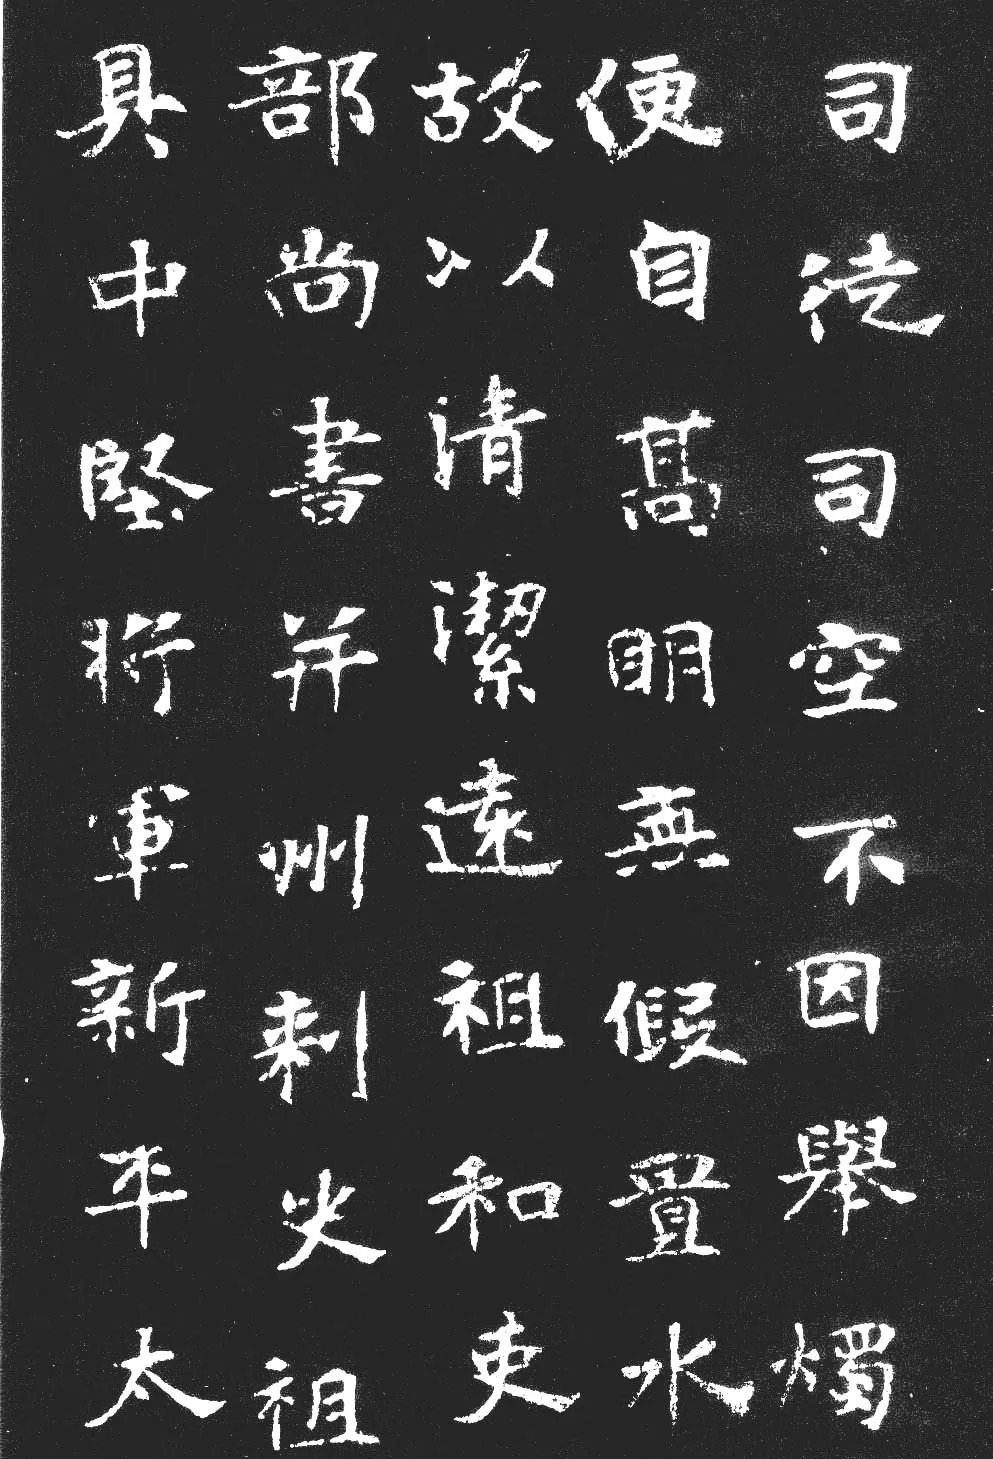 司法司空不因舉燭
便自髙明無假置水
故以清潔遠祖和吏
部尚書并州刺史祖
具中堅將軍新平太